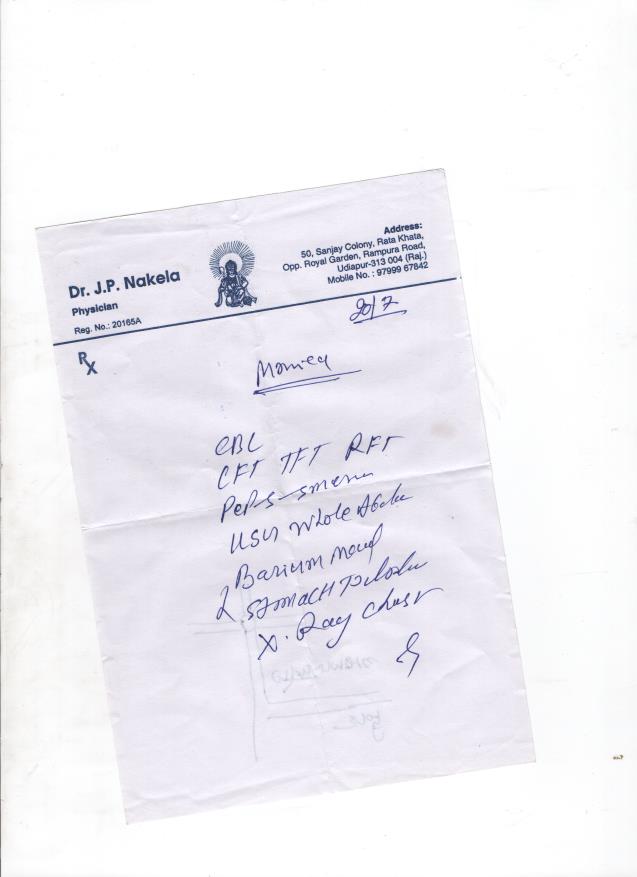 Dr. J.P. Nakela
Physician
Reg. No.: 20165A
Address:
50, Sanjay Colony, Rata Khata,
Opp. Royal Garden, Rampura Road,
Udiapur-313 004 (Raj.)
Mobile No. : 97999 67842
20/7
Rx
CBC
TFT RFT
USG Whole
Barium
STOMACH
X. Ray Chest